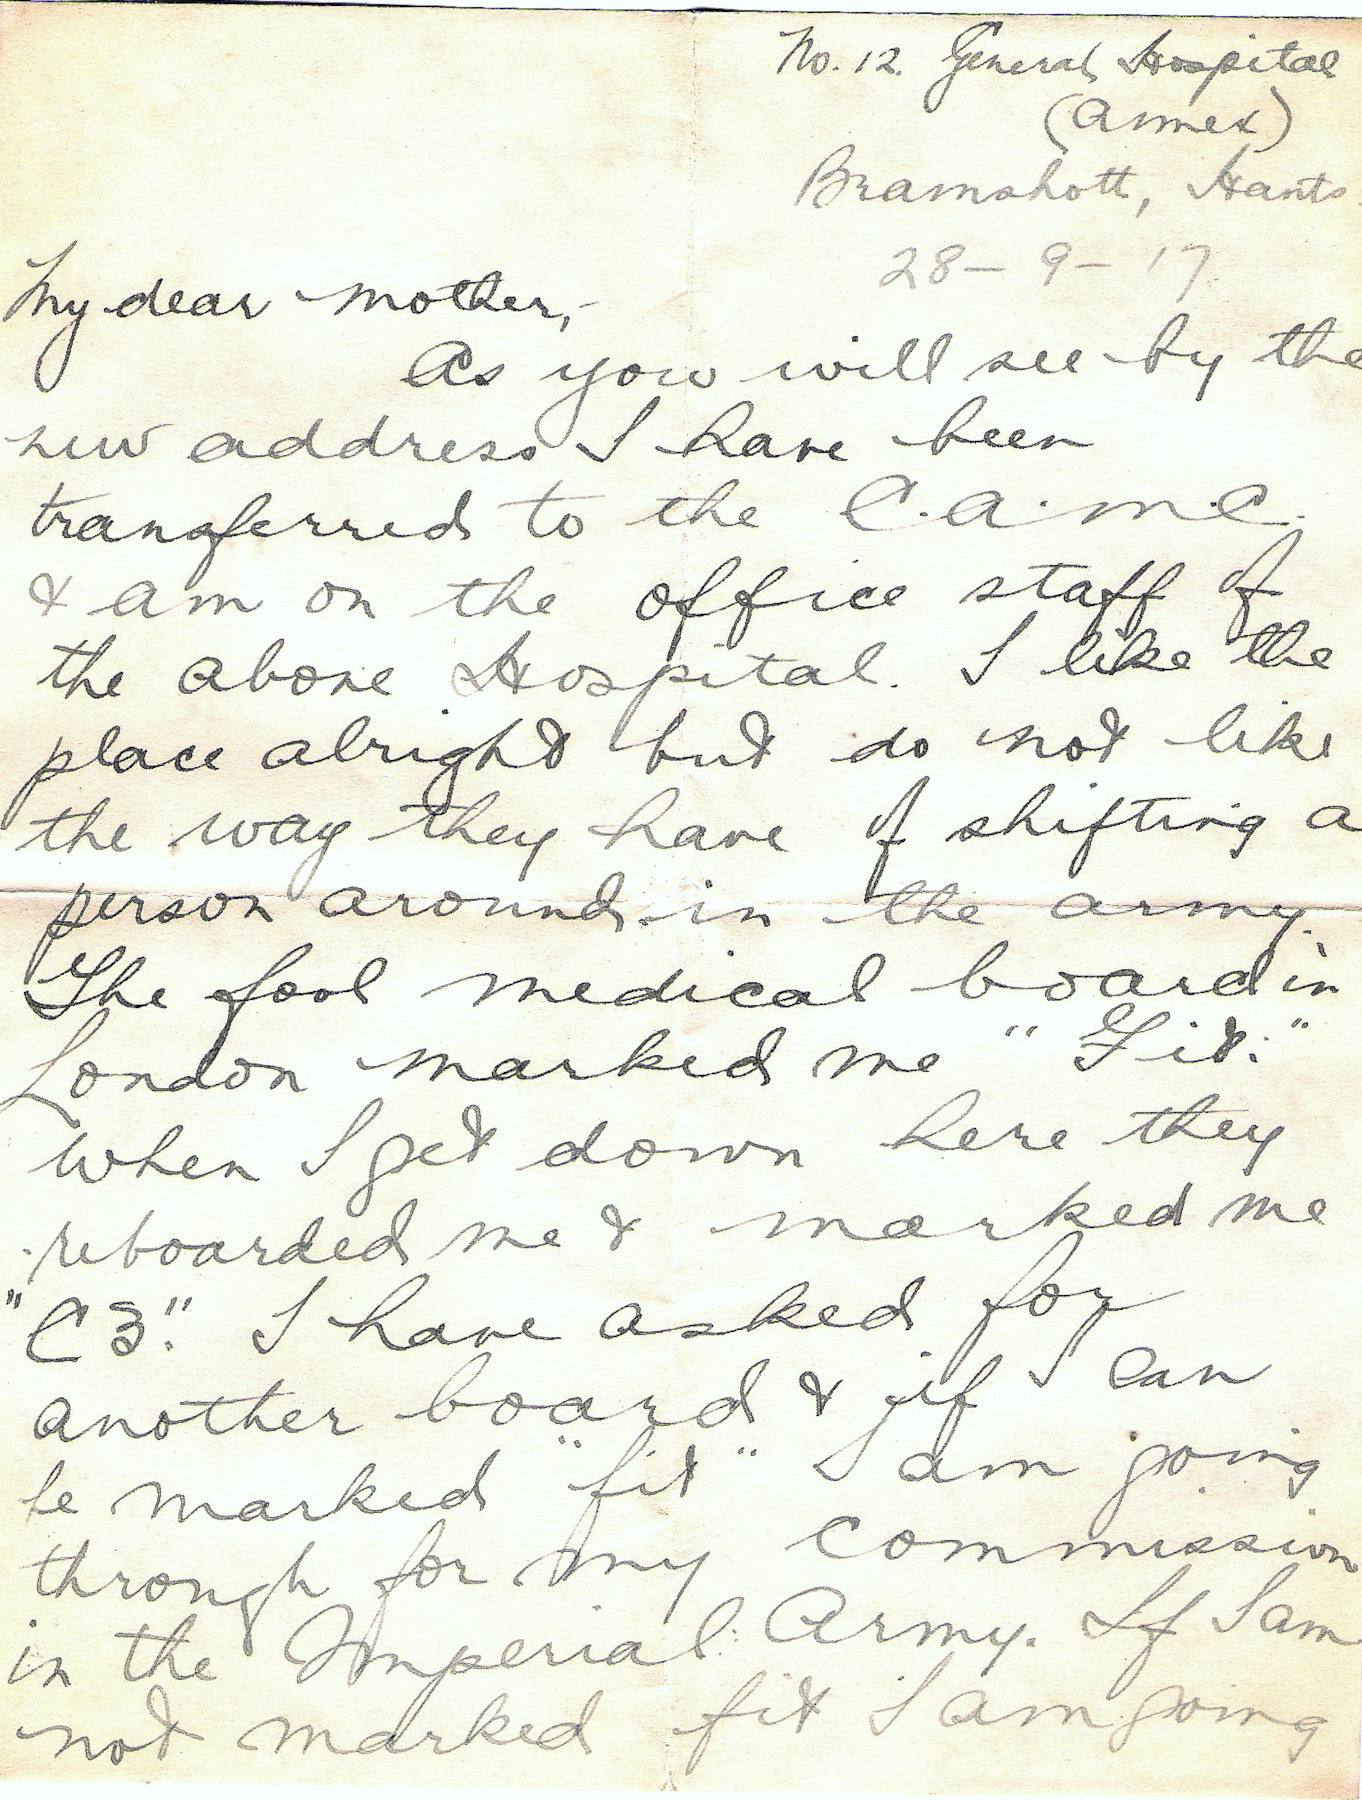 No. 12. General Hospital
(Annex)
Bramshott, Hants.
28-9-17.
My dear mother,-
As you will see by the
new address I have been
transferred to the C.A.M.C.
& am on the office staff of
the above Hospital. I like the
place alright but do not like
the way they have of shifting a
person around in the army.
The fool medical board in
London marked me "Fit."
when I get down here they
reboarded me & marked me
"C3". I have asked for
another board & if I can
be marked "fit" I am going
through for my commission
in the Imperial Army. If I am
not marked fit I am going